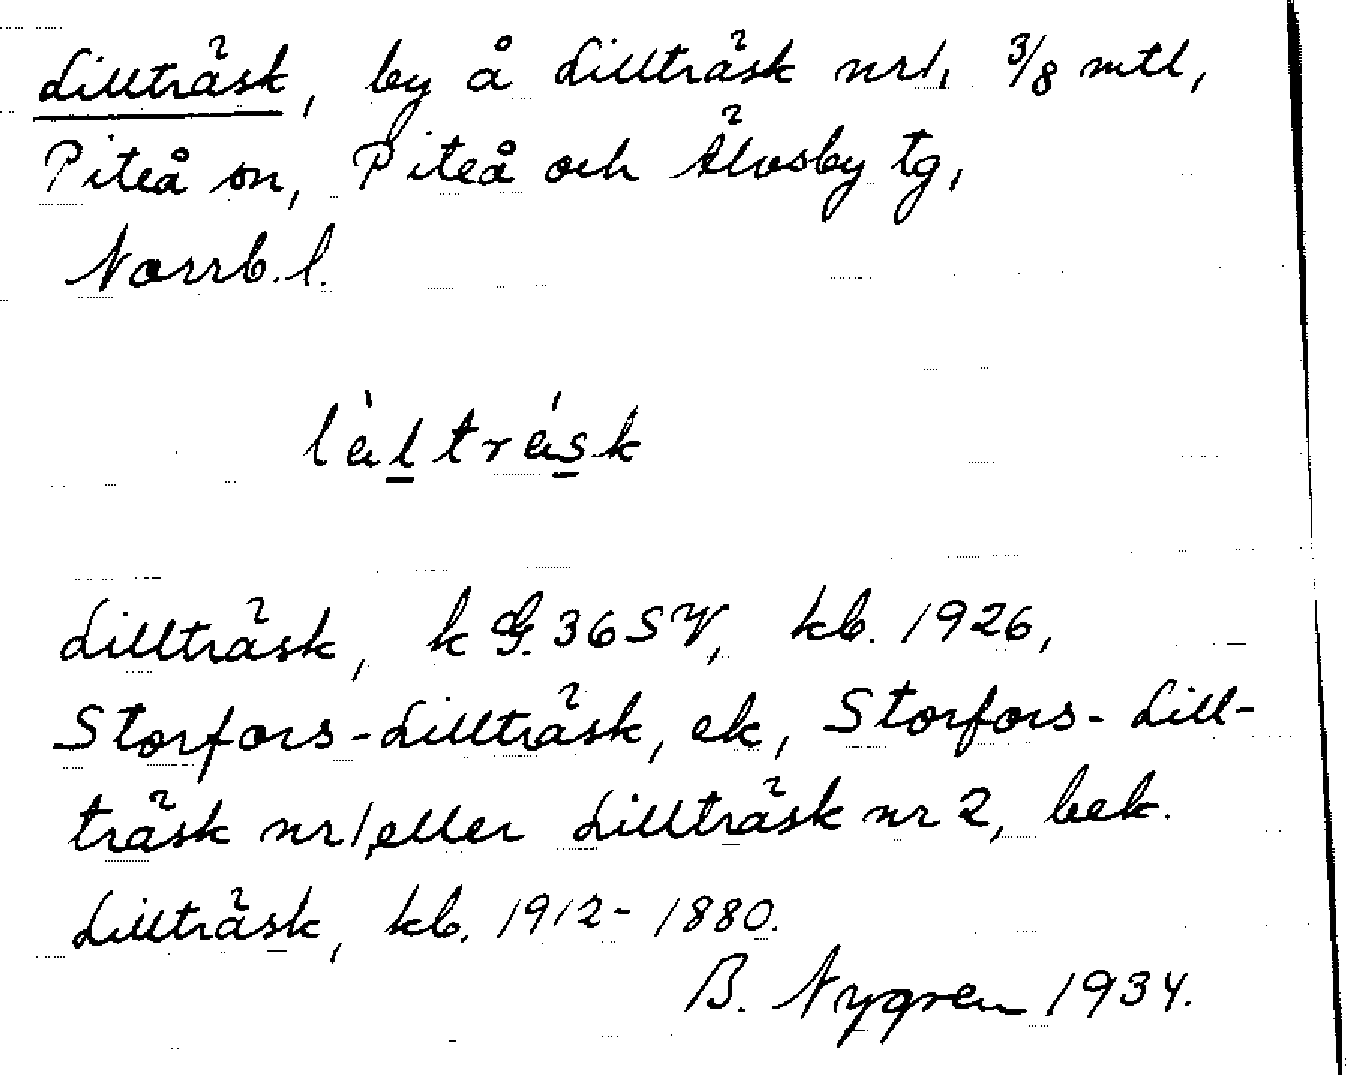 Lillträsk, by å Lillträsk nr 1, 3/8 mtl,
Piteå sn, Piteå och Älvsby tg,
Norrb. l.
làltrásk
Lillträsk, k G. 36 SV, kb. 1926,
Storfors-Lillträsk, ek, Storfors-Lill-
träsk nr 1, eller Lillträsk nr 2, bek.
Lillträsk, kb. 1912-1880.
B. Nygren 1934.